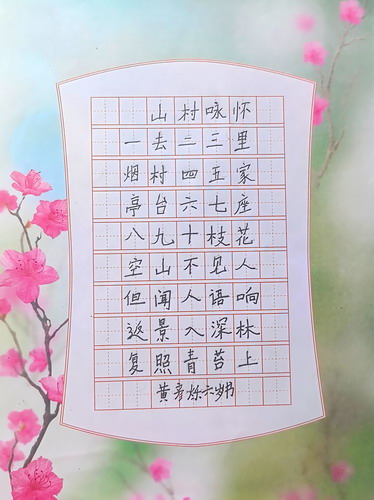 山村咏怀
一去二三里
烟村四五家
亭台六七座
八九十枝花
空山不见人
但闻人语响
返景入深林
复照青苔上
黄彦烁六岁书